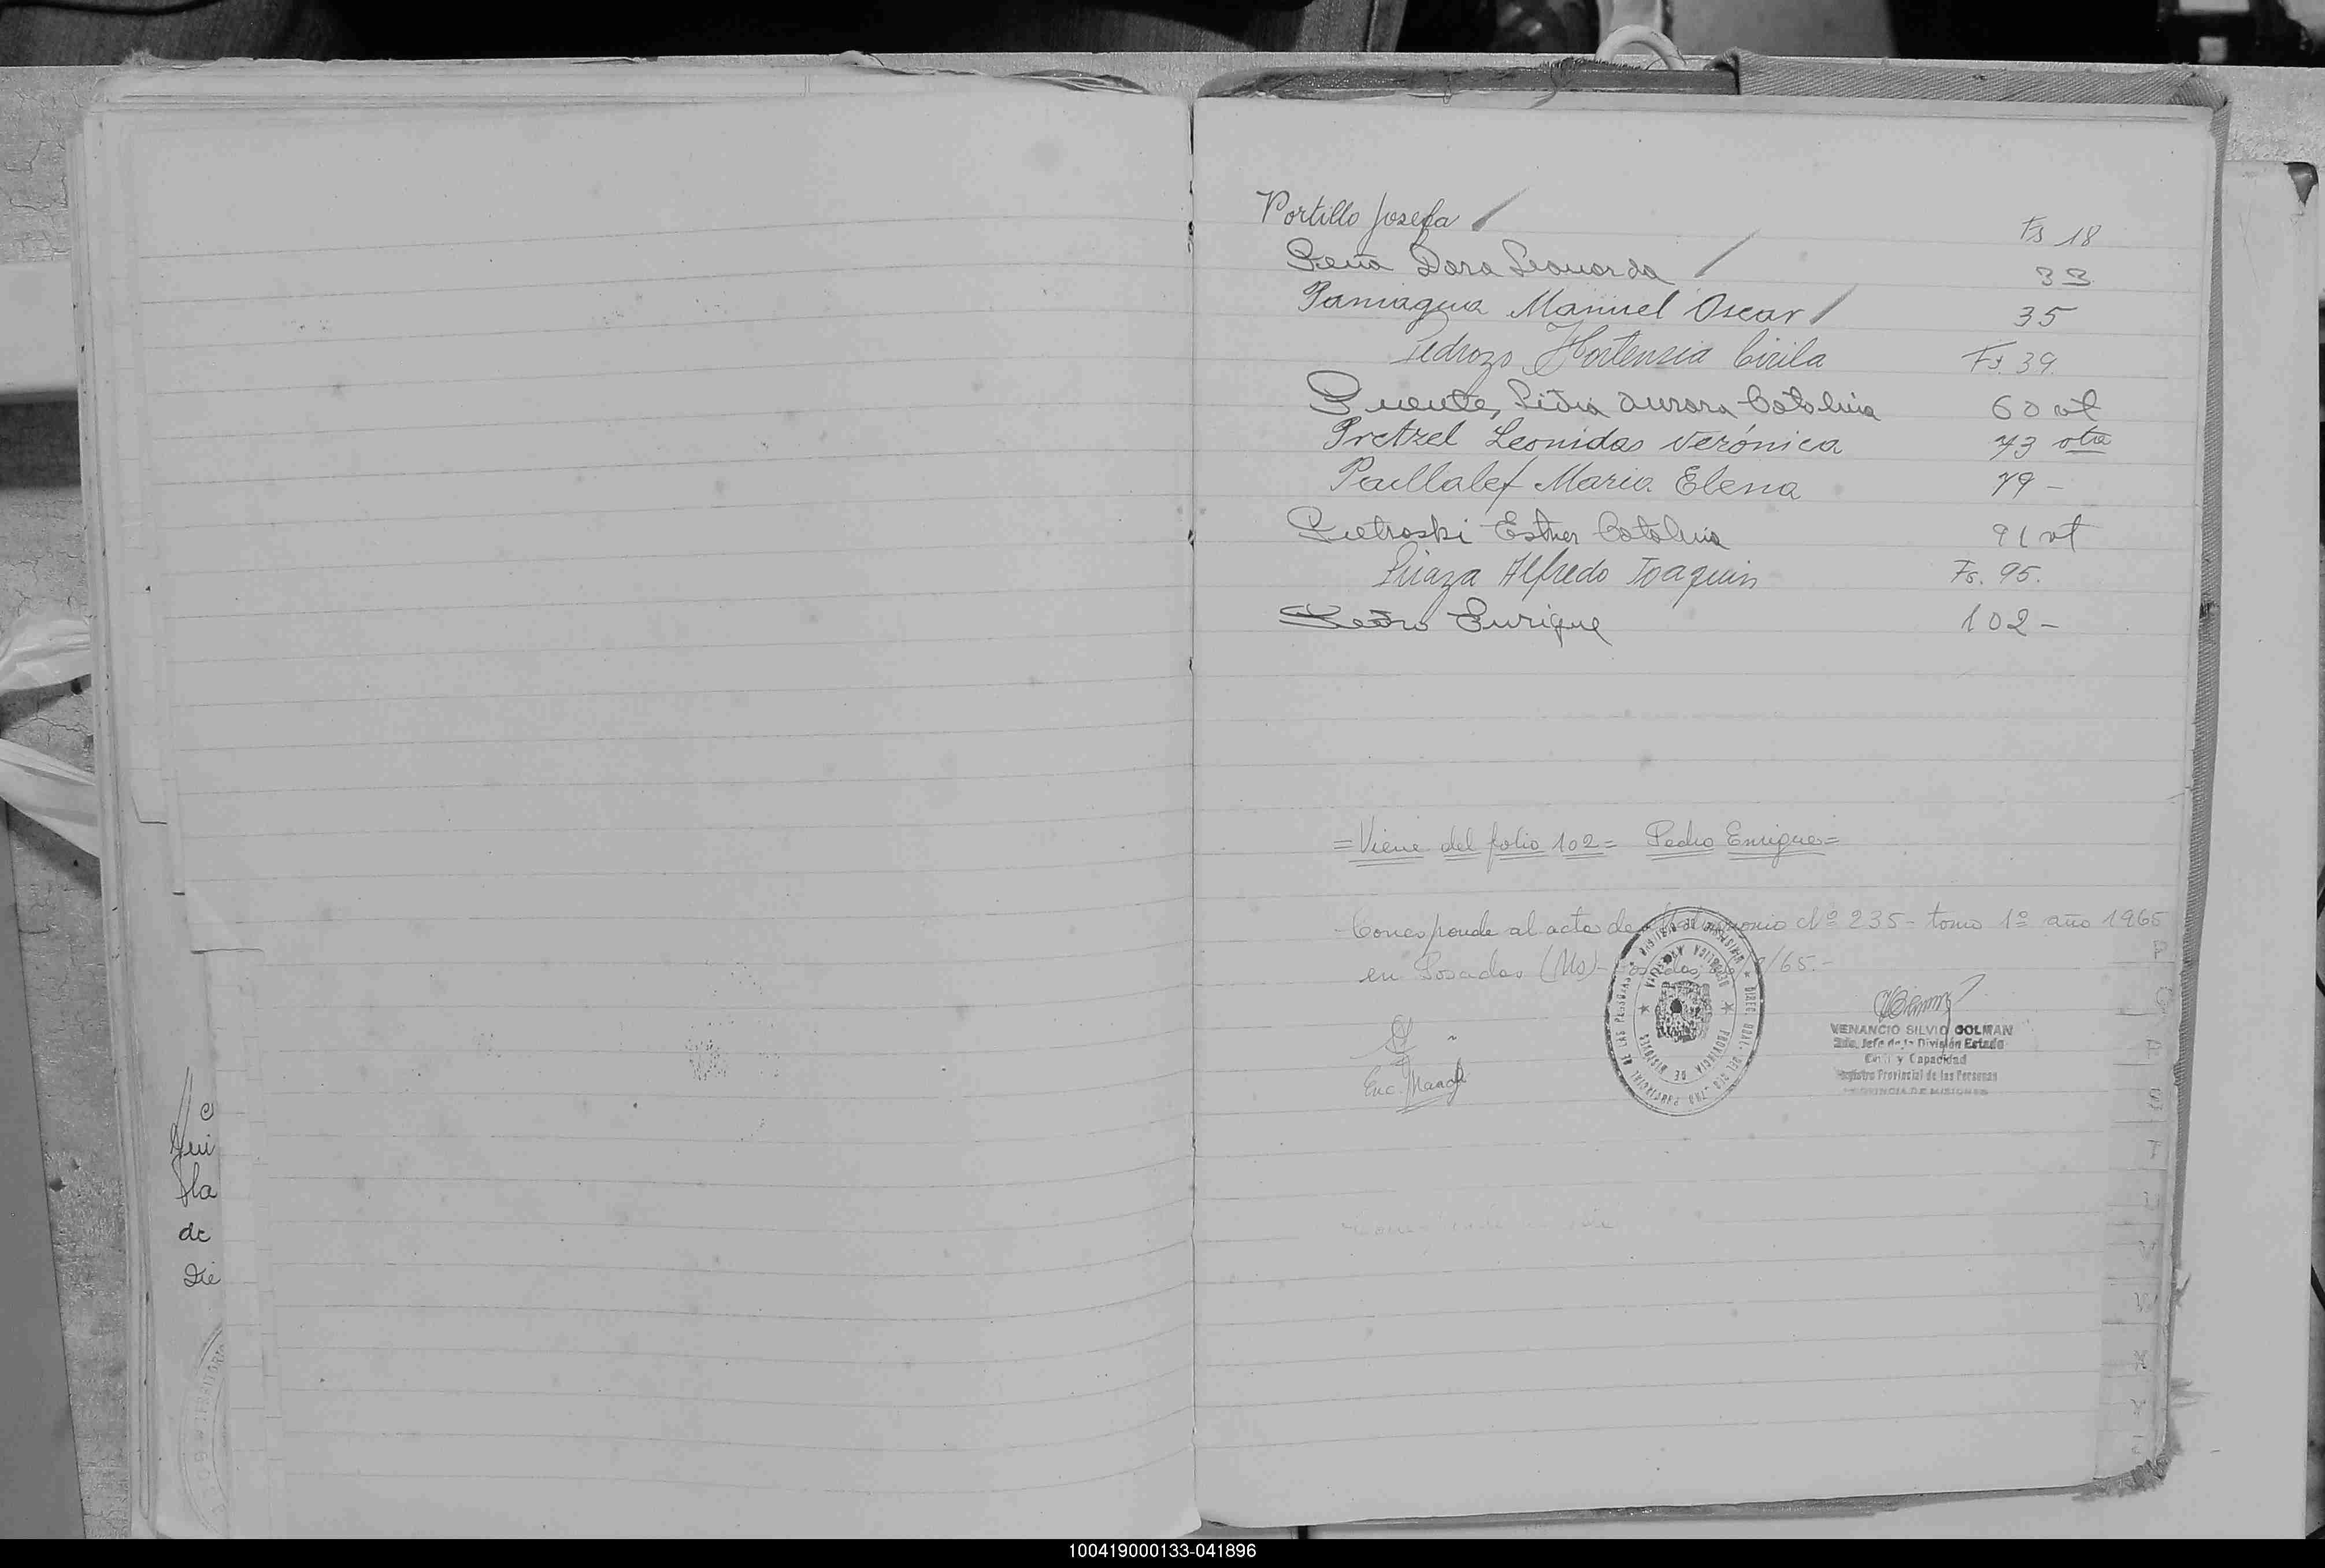 Portillo Josefa Fs 18
Peña Dora Leonarda 33
Paniagua Manuel Oscar 35
Pedrozo Hortensia Cirila Fs. 39.
Puente, Lidia Aurora Catalina 60 vt
Pretzel Leonidas Verónica 73 vta
Paillalef Maria Elena 79 -
Pietroski Esther Catalina 91 vt
Alfredo Joaquin Fs. 95.
Pedro Enrique 102 -
= Viene del folio 102 = Pedro Enrique =
Corresponde al acta de Matrimonio Nº 235 - tomo 1º año 1965
en Posadas (Ms) - Posadas, /65.-
VENANCIO SILVIO GOLMAN
2do. Jefe de la División Estado
Civil y Capacidad
Registro Provincial de las Personas
PROVINCIA DE MISIONES
Enc.
qui
la
de
Die
100419000133-041896